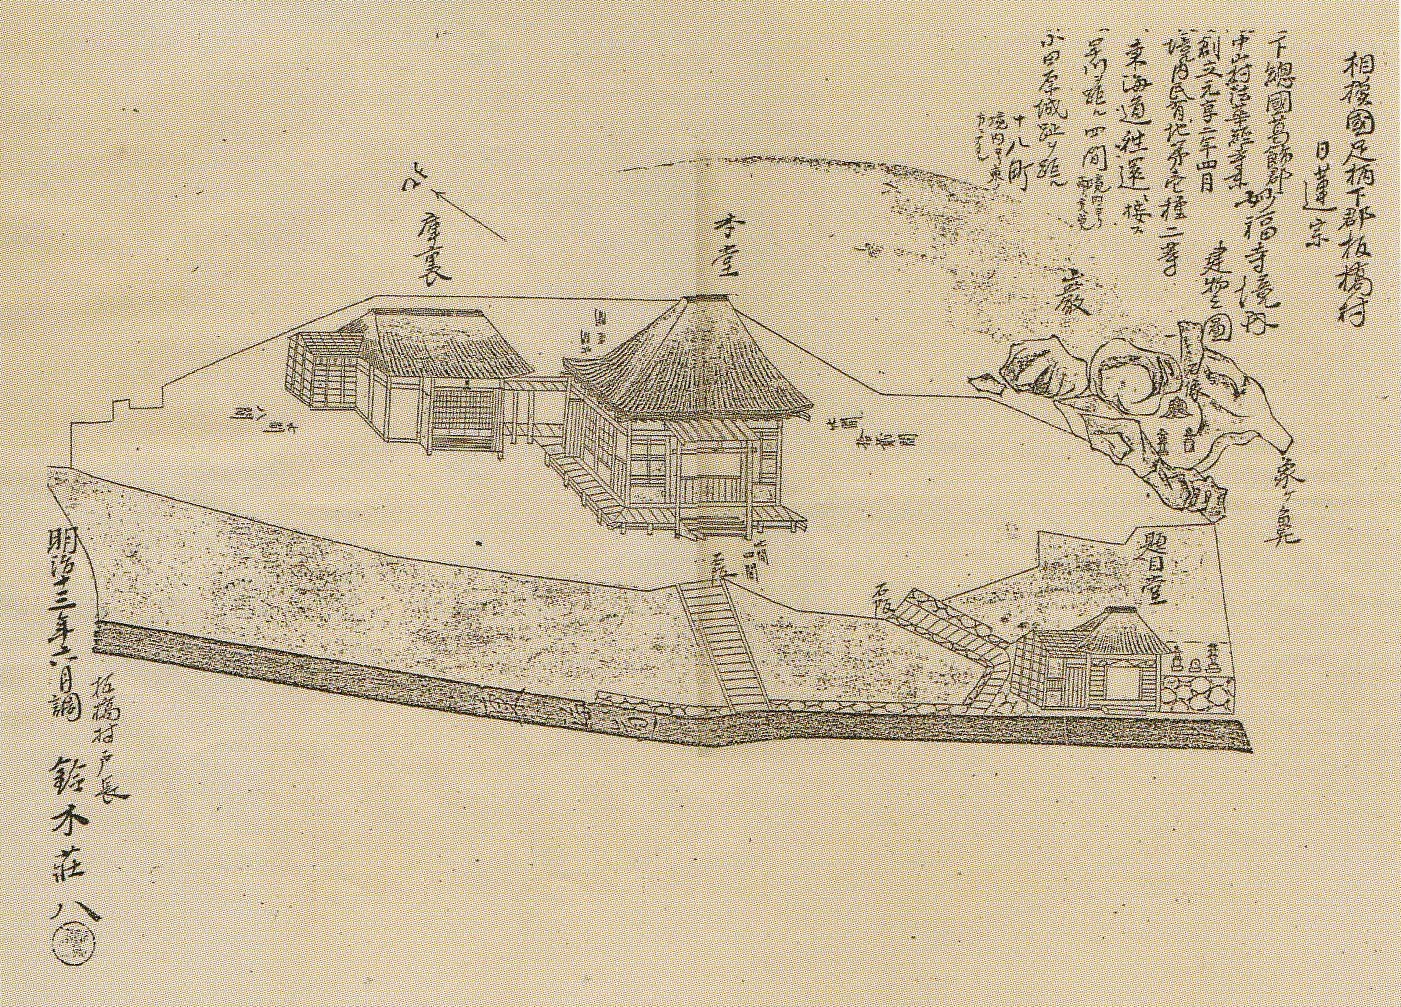 相模國足柄下郡板橋村
日蓮宗
下總國葛飾郡
中山村法華經寺末
妙福寺境内
建物之圖
創立元享二年四月
境内民有地第壱種二等
東海道往還ニ接ス
早川ヲ距ル四間
小田原城趾ヲ距ル
十八町
北
庫裏
本堂
巌
題目堂
石段
石段
明治十三年六月調
板橋村戸長
鈴木莊八